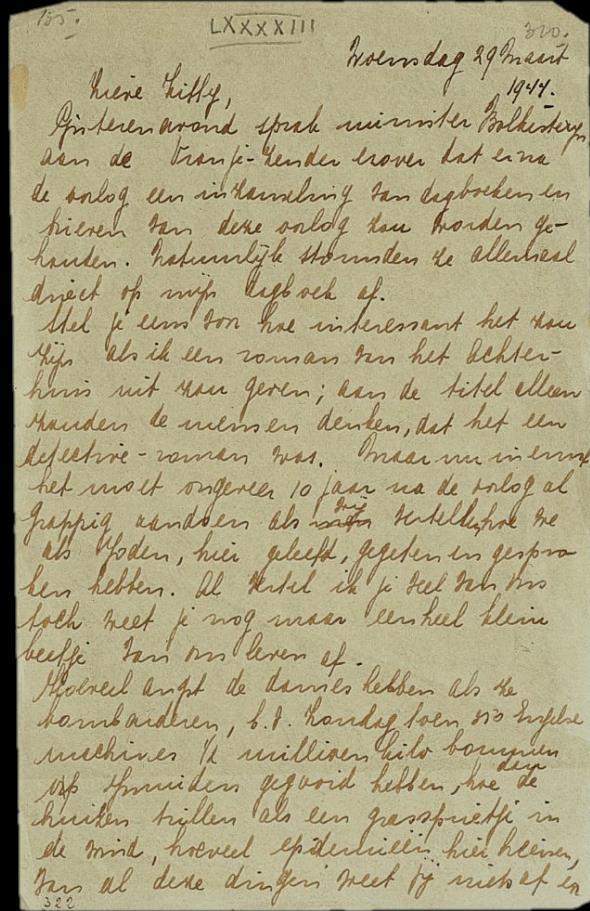 155.
LXXXXIII
320.
Woensdag 29 Maart
1944.
Lieve Kitty,
Gisterenavond sprak minister Bolkesteyn
aan de Oranje-zender erover dat er na
de oorlog een inzameling van dagboeken en
brieven van deze oorlog zou worden ge-
houden. Natuurlijk stormden ze allemaal
direct op mijn dagboek af.
Stel je eens voor hoe interessant het zou
zijn als ik een roman van het Achter-
huis uit zou geven; aan de titel alleen
zouden de mensen denken, dat het een
detective-roman was. Maar nu in ernst
het moet ongeveer 10 jaar na de oorlog al
grappig aandoen als wij vertellen, hoe we
als Joden, hier geleefd, gegeten en gespro
ken hebben. Al vertel ik je veel van ons
toch weet je nog maar een heel klein
beetje van ons leven af.
Hoeveel angst de dames hebben als ze
bombarderen, b.v. Zondag toen 350 Engelse
machines 1/2 millioen kilo bommen
op Ijmuiden gegooid hebben, hoe dan de
huizen trillen als een grasprietje in
de wind, hoeveel epidemieën hier heersen,
van al deze dingen weet jij niets af en
322